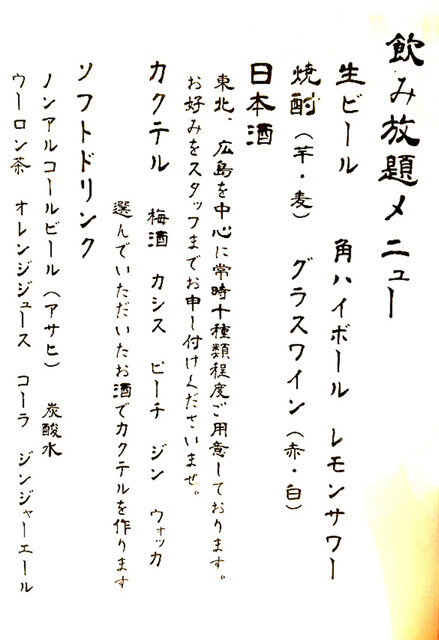 飲み放題メニュー
生ビール　角ハイボール　レモンサワー
焼酎（芋・麦）　グラスワイン（赤・白）
日本酒
東北、広島を中心に常時十種類程度ご用意しております。
お好みをスタッフまでお申し付けくださいませ。
カクテル　梅酒　カシス　ピーチ　ジン　ウォッカ
選んでいただいたお酒でカクテルを作ります
ソフトドリンク
ノンアルコールビール（アサヒ）　炭酸水
ウーロン茶　オレンジジュース　コーラ　ジンジャーエール